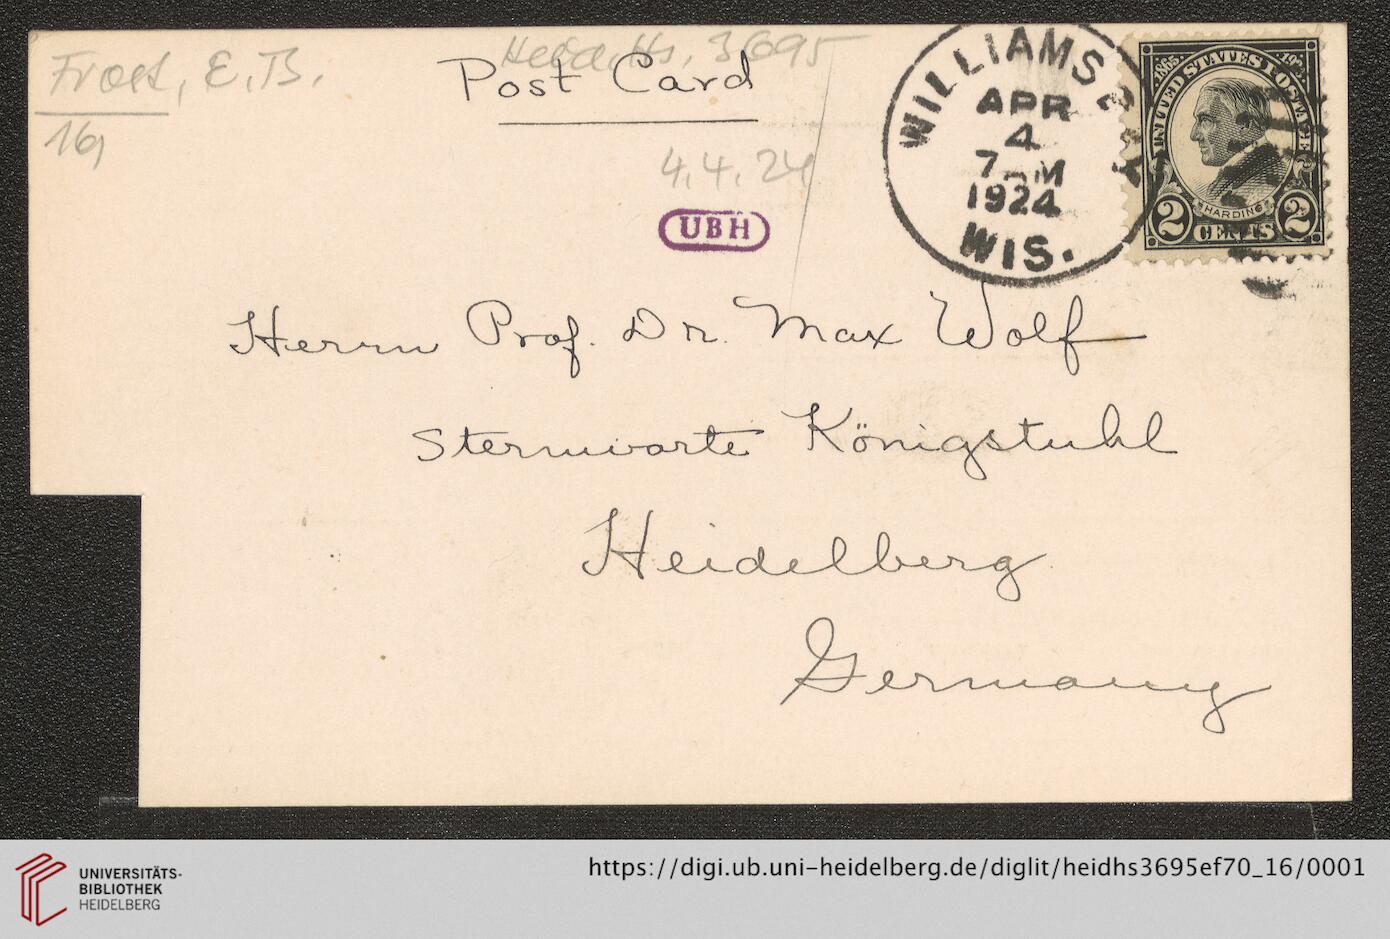 Frost, E. B.
Heid. Hs. 3695
Post Card
16,
4.4.24
UBH
WILLIAMS BAY
APR
4
7 AM
1924
WIS.
1865 1923
UNITED STATES POSTAGE
HARDING
2 CENTS 2
Herrn Prof. Dr. Max Wolf
Sternwarte Königstuhl
Heidelberg
Germany
UNIVERSITÄTS-
BIBLIOTHEK
HEIDELBERG
https://digi.ub.uni-heidelberg.de/diglit/heidhs3695ef70_16/0001